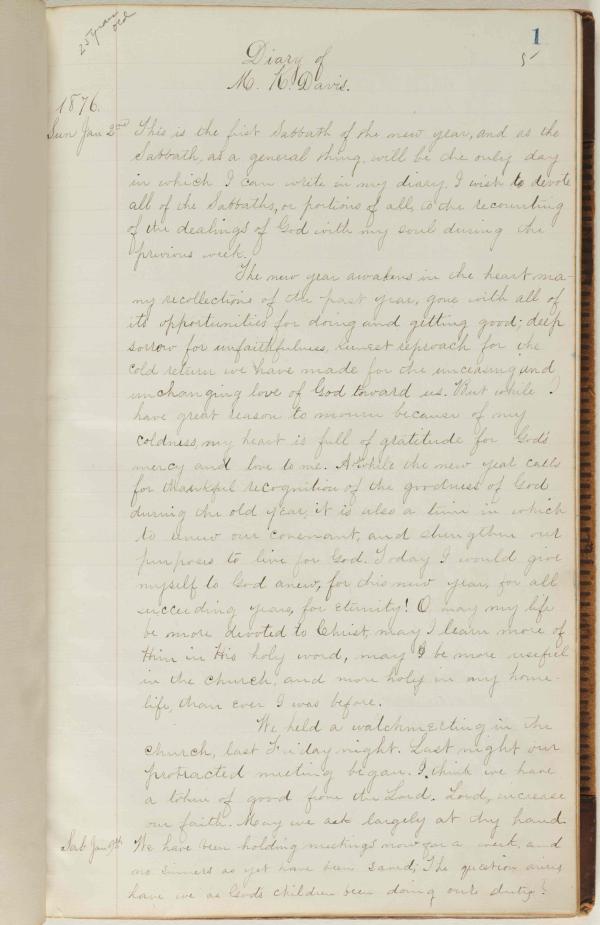 25 years
old
1
5
Diary of
M. K. Davis.
1876.
Sun Jan 2nd This is the first Sabbath of the new year, and as the
Sabbath, as a general thing, will be the only day
in which I can write in my diary, I wish to devote
all of the Sabbaths, or portions of all, to the recounting
of the dealings of God with my soul during the
previous week.
The new year awakens in the heart ma-
ny recollections of the past year, gone with all of
its opportunities for doing and getting good; deep
sorrow for unfaithfulness, sincerest reproach for the
cold return we have made for the unceasing and
unchanging love of God toward us. But while I
have great reason to mourn because of my
coldness, my heart is full of gratitude for God's
mercy and love to me. And while the new year calls
for thankful recognition of the goodness of God
during the old year, it is also a time in which
to renew our covenant, and strengthen our
purposes to live for God. Today I would give
myself to God anew, for this new year, for all
succeeding years, for eternity! O may my life
be more devoted to Christ, may I learn more of
Him in His holy word, may I be more useful
in the church, and more holy in my home-
life, than ever I was before.
We held a watchmeeting in the
church, last Friday night. Last night our
protracted meeting began. I think we have
a token of good from the Lord. Lord, increase
our faith. May we ask largely at thy hand
Sab Jan 9th We have been holding meetings now for a week, and
no sinners as yet have been saved; The question arises
have we as God's children been doing our duty?